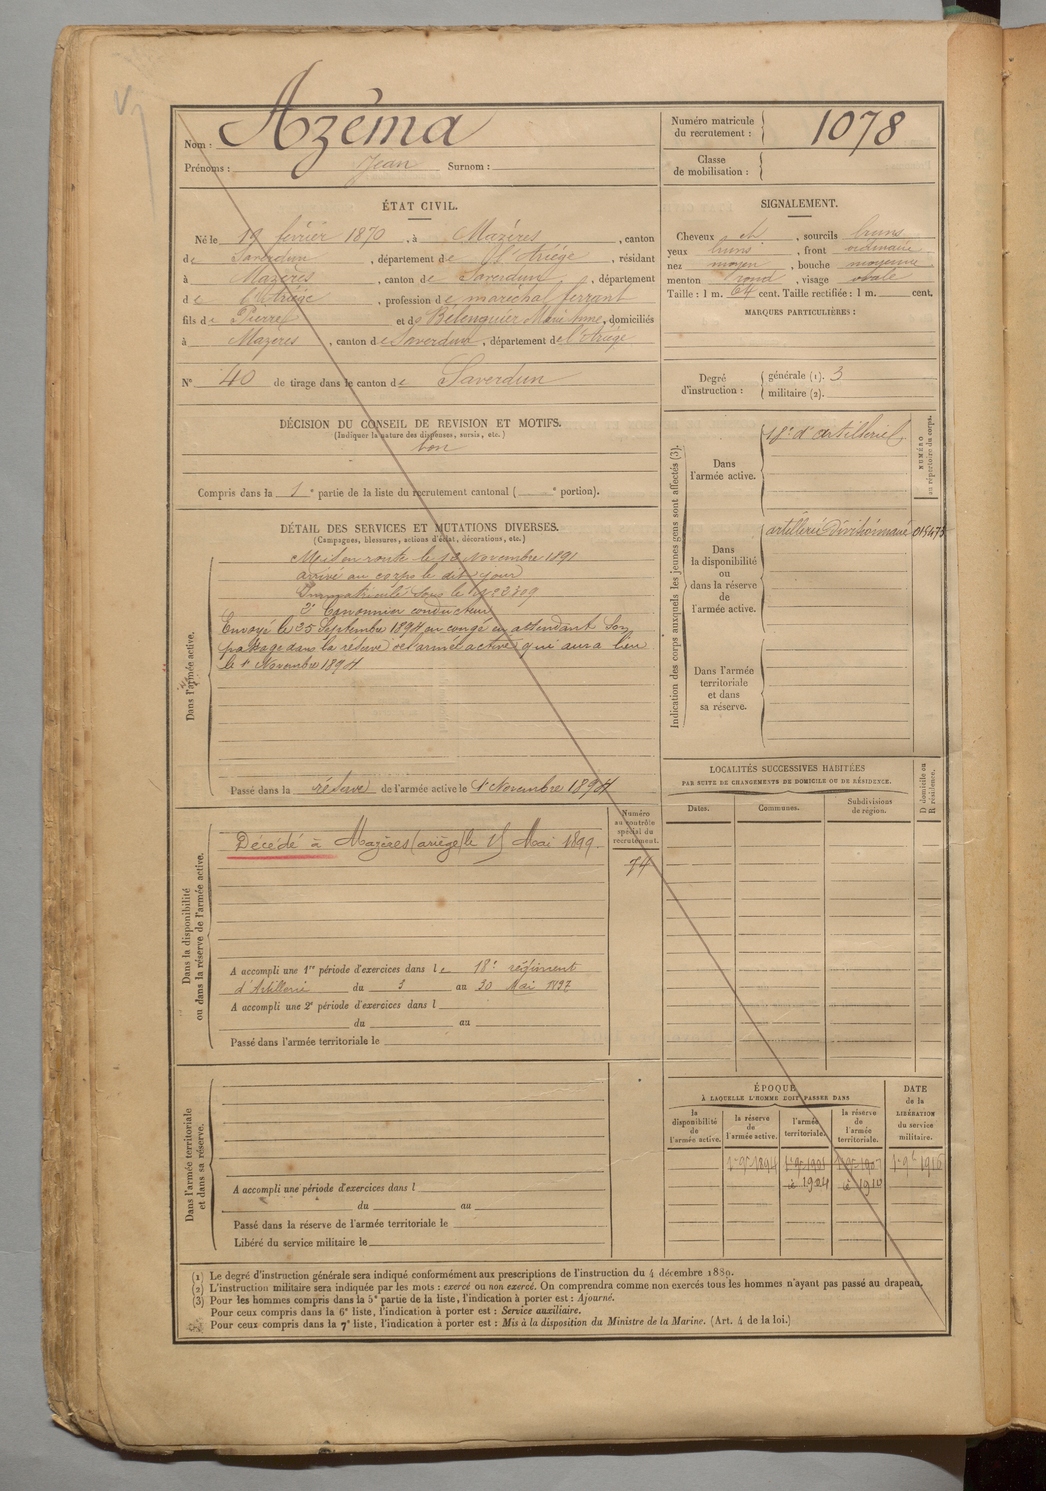 Nom : Azéma
Prénoms : Jean Surnom :
Numéro matricule
du recrutement : 1078
Classe
de mobilisation :
ÉTAT CIVIL.
Né le 19 février 1870, à Mazères, canton
de Saverdun, département de l'Ariège, résidant
à Mazères, canton de Saverdun, département
de l'Ariège, profession de maréchal ferrant
fils de Pierre et de Belenguier Marie Anne, domiciliés
à Mazères, canton de Saverdun, département de l'Ariège
N° 40 de tirage dans le canton de Saverdun
SIGNALEMENT.
Cheveux et, sourcils bruns
yeux bruns, front ordinaire
nez moyen, bouche moyenne
menton rond, visage ovale
Taille : 1 m. 64 cent. Taille rectifiée : 1 m. cent.
MARQUES PARTICULIÈRES :
Degré
d'instruction :
générale (1). 3
militaire (2).
DÉCISION DU CONSEIL DE REVISION ET MOTIFS.
(Indiquer la nature des dispenses, sursis, etc.)
bon
Compris dans la 1e partie de la liste du recrutement cantonal ( e portion).
DÉTAIL DES SERVICES ET MUTATIONS DIVERSES.
(Campagnes, blessures, actions d'éclat, décorations, etc.)
Dans l'armée active.
Mis en route le 12 Novembre 1891
arrivé au corps le dit jour
Immatriculé sous le n° 2309
2e Canonnier conducteur
Envoyé le 25 Septembre 1894 en congé en attendant son
passage dans la réserve de l'armée active qui aura lieu
le 1er Novembre 1894
Passé dans la réserve de l'armée active le 1er Novembre 1894
Indication des corps auxquels les jeunes gens sont affectés (3).
NUMÉRO
au répertoire du corps.
Dans
l'armée active.
18e d'artillerie
Dans
la disponibilité
ou
dans la réserve
de
l'armée active.
artillerie divisionnaire 015473
Dans l'armée
territoriale
et dans
sa réserve.
LOCALITÉS SUCCESSIVES HABITÉES
PAR SUITE DE CHANGEMENTS DE DOMICILE OU DE RÉSIDENCE.
Dates.
Communes.
Subdivisions
de région.
D domicile ou
R résidence.
Dans la disponibilité
ou dans la réserve de l'armée active.
Numéro
au contrôle
spécial du
recrutement.
74
Décédé à Mazères (ariège) le 15 Mai 1899.
A accompli une 1re période d'exercices dans le 18e régiment
d'Artillerie du 3 au 30 Mai 1897
A accompli une 2e période d'exercices dans l
du au
Passé dans l'armée territoriale le
Dans l'armée territoriale
et dans sa réserve.
A accompli une période d'exercices dans l
du au
Passé dans la réserve de l'armée territoriale le
Libéré du service militaire le
ÉPOQUE
À LAQUELLE L'HOMME DOIT PASSER DANS
la
disponibilité
de
l'armée active.
la réserve
de
l'armée active.
l'armée
territoriale.
la réserve
de
l'armée
territoriale.
DATE
de la
LIBÉRATION
du service
militaire.
1er 9bre 1894
(1) Le degré d'instruction générale sera indiqué conformément aux prescriptions de l'instruction du 4 décembre 1889.
(2) L'instruction militaire sera indiquée par les mots : exercé ou non exercé. On comprendra comme non exercés tous les hommes n'ayant pas passé au drapeau.
(3) Pour les hommes compris dans la 5e partie de la liste, l'indication à porter est : Ajourné.
Pour ceux compris dans la 6e liste, l'indication à porter est : Service auxiliaire.
Pour ceux compris dans la 7e liste, l'indication à porter est : Mis à la disposition du Ministre de la Marine. (Art. 4 de la loi.)